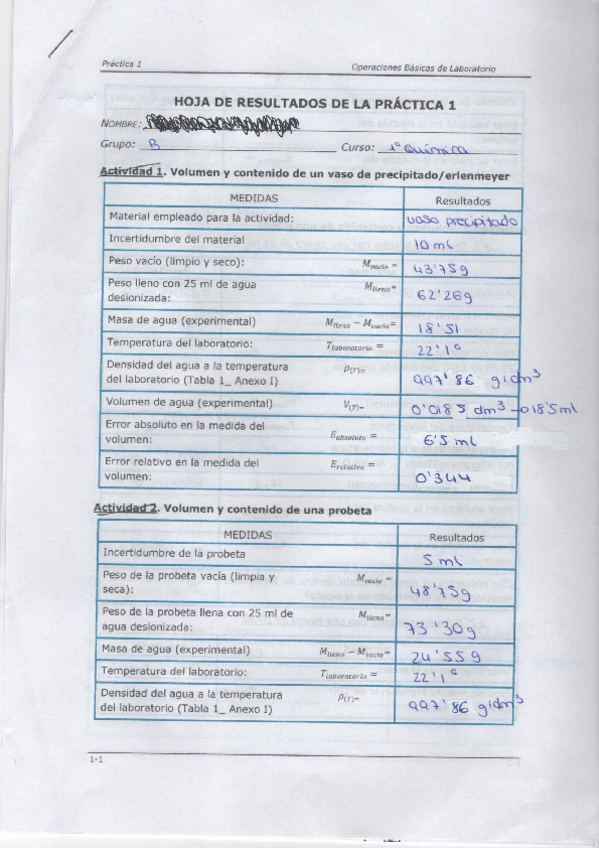 Práctica 1 Operaciones Básicas de Laboratorio
HOJA DE RESULTADOS DE LA PRÁCTICA 1
NOMBRE:
Grupo: B Curso: 1º Química
Actividad 1. Volumen y contenido de un vaso de precipitado/erlenmeyer
MEDIDAS Resultados
Material empleado para la actividad: vaso precipitado
Incertidumbre del material 10 ml
Peso vacío (limpio y seco): Mvacío = 43'75g
Peso lleno con 25 ml de agua
desionizada: Mlleno= 62'26g
Masa de agua (experimental) Mlleno − Mvacío= 18'51
Temperatura del laboratorio: Tlaboratorio = 22'1º
Densidad del agua a la temperatura
del laboratorio (Tabla 1_ Anexo I) ρ(T)= 997'86 g/dm³
Volumen de agua (experimental) V(T)= 0'0185 dm³→018'5ml
Error absoluto en la medida del
volumen: Eabsoluto = 6'5 ml
Error relativo en la medida del
volumen: Erelativo = 0'344
Actividad 2. Volumen y contenido de una probeta
MEDIDAS Resultados
Incertidumbre de la probeta 5 ml
Peso de la probeta vacía (limpia y
seca): Mvacío = 48'75g
Peso de la probeta llena con 25 ml de
agua desionizada: Mlleno= 73'30g
Masa de agua (experimental) Mlleno − Mvacío= 24'55g
Temperatura del laboratorio: Tlaboratorio = 22'1º
Densidad del agua a la temperatura
del laboratorio (Tabla 1_ Anexo I) ρ(T)= 997'86 g/dm³
1-1